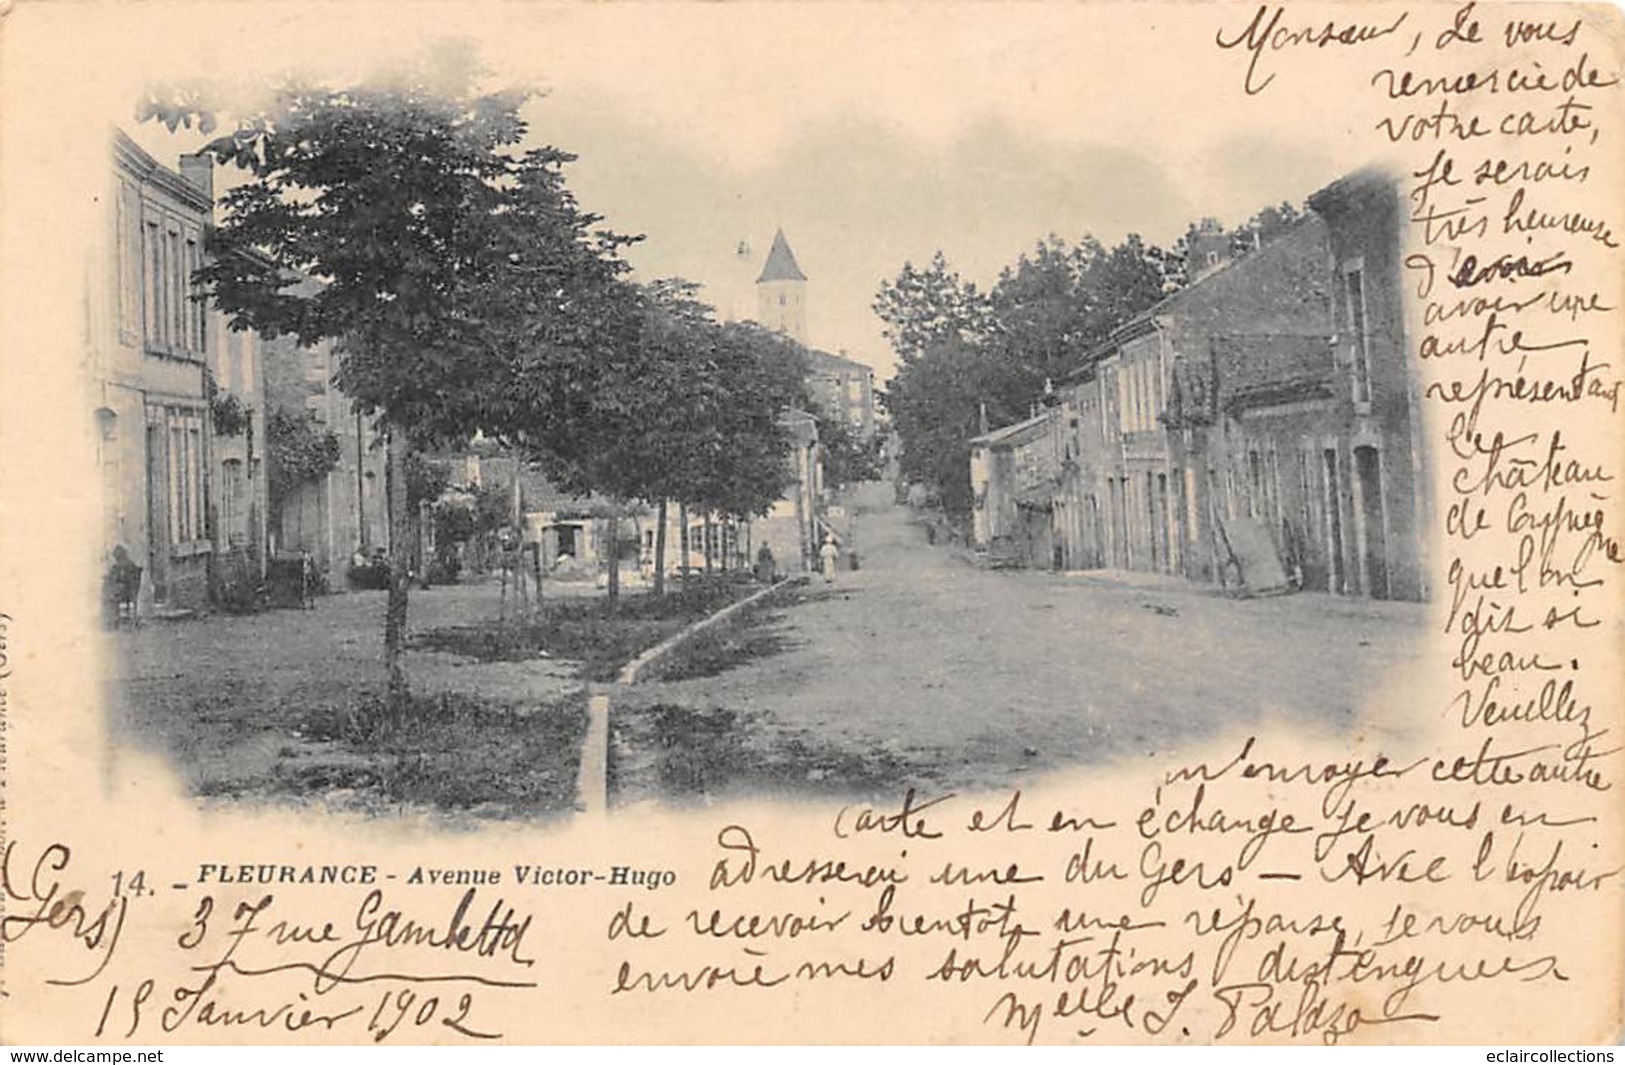 Monsieur, Je vous
remercie de
votre carte,
je serais
très heureuse
d'
avoir une
autre
représentant
le
château
de
que l'on
dit si
beau.
Veuillez
m'envoyer cette autre
carte et en échange je vous en
adresserai une du Gers — Avec l'espoir
de recevoir bientôt une réponse, je vous
envoie mes salutations distinguées
Melle J. Palazo
14. - FLEURANCE - Avenue Victor-Hugo
(Gers)
37 rue Gambetta
15 Janvier 1902
Fleurance (Gers)
delcampe.net
eclaircollections